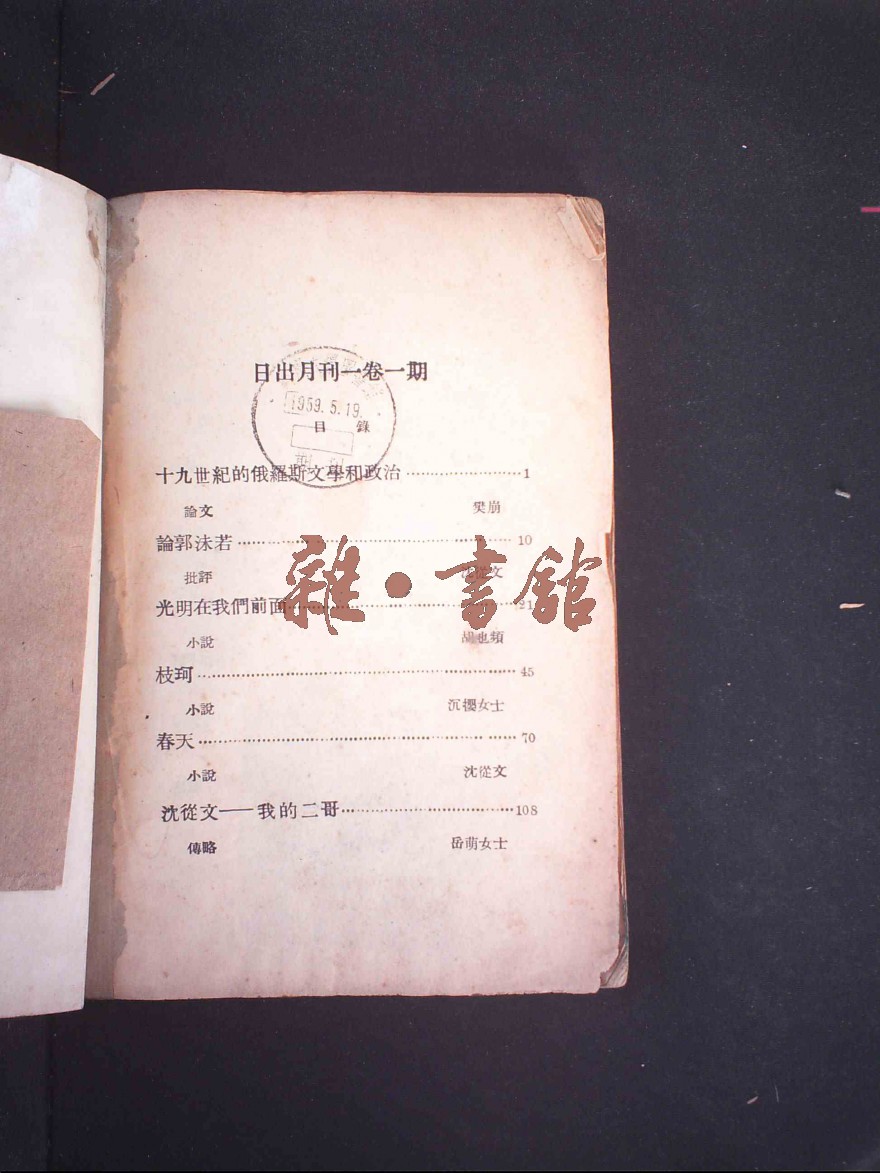 日出月刊一卷一期
1959.5.19.
目錄
十九世紀的俄羅斯文學和政治……………………1
論文 樊崩
論郭沬若……………………10
批評 沈從文
光明在我們前面……………………21
小說 胡也頻
枝珂……………………45
小說 沉櫻女士
春天……………………70
小說 沈從文
沈從文——我的二哥……………………108
傳略 岳萌女士
雜·書館